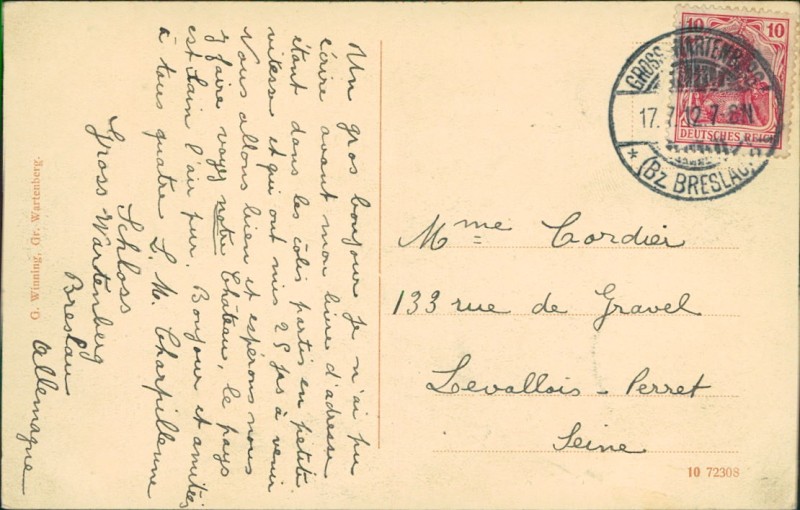 Un gros bonjour je n'ai pu
écrire avant mon livre d'adresse
étant dans les colis partis en petite
vitesse et qui ont mis 25 jrs à venir
Nous allons bien et espérons nous
y faire voyez notre Château, le pays
est sain l'air pur. Bonjour et amitiés
à tous quatre L. M. Charpillenne
Schloss
Gross Wartenberg
Breslau
Allemagne
G. Winning, Gr. Wartenberg.
10 10
DEUTSCHES REICH
GROSS WARTENBERG
17.7.12.7-8N
* (Bz. BRESLAU)
Mme Cordier
133 rue de Gravel
Levallois-Perret
Seine
10 72308